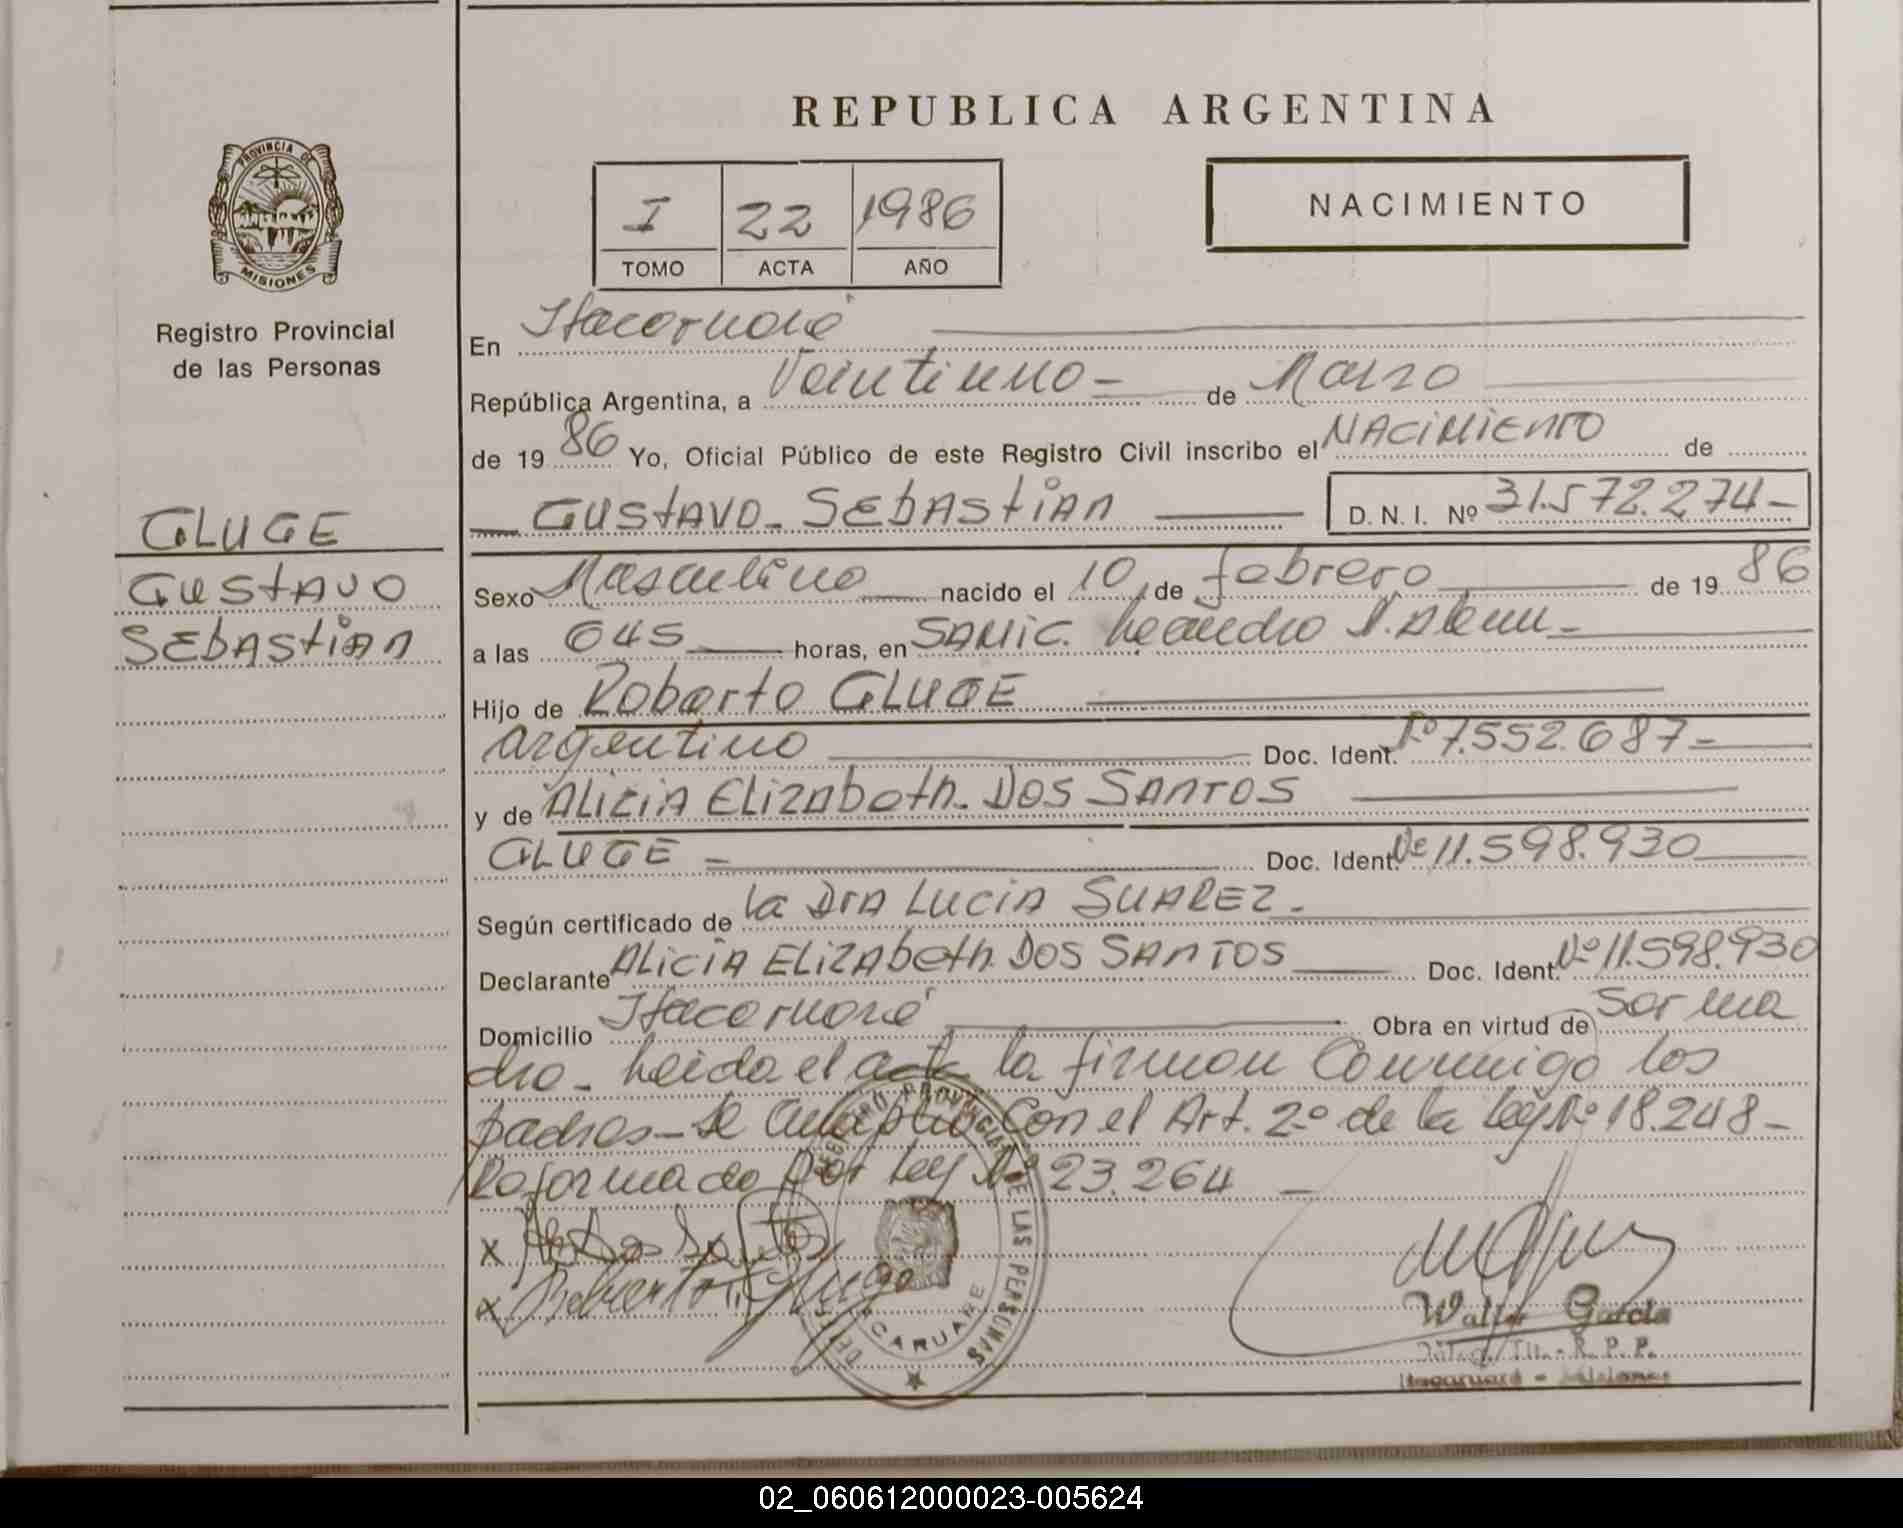 REPUBLICA ARGENTINA
PROVINCIA DE
MISIONES
Registro Provincial
de las Personas
I 22 1986
TOMO ACTA AÑO
NACIMIENTO
En Itacaruaré
República Argentina, a Veintiuno - de Marzo
de 19 86 Yo, Oficial Público de este Registro Civil inscribo el NACIMIENTO de
GUSTAVO - SEBASTIAN D. N. I. Nº 31.572.274 -
GLUGE
GUSTAVO
SEBASTIAN
Sexo Masculino nacido el 10 de febrero de 19 86
a las 645 horas, en SAMIC. Leandro N. Alem -
Hijo de Roberto GLUGE
argentino Doc. Ident. Nº 7.552.687 -
y de ALICIA ELIZABETH - DOS SANTOS
GLUGE - Doc. Ident. Nº 11.598.930
Según certificado de la DRA LUCIA SUAREZ -
Declarante ALICIA ELIZABETH DOS SANTOS Doc. Ident. Nº 11.598.930
Domicilio Itacaruaré Obra en virtud de Ser ma
dre - Leida el acta la firman Conmigo los
padres - Se Con el Art. 2º de la Ley Nº 18.248 -
Reformado por Ley Nº 23.264 -
x Dos Santos
x Roberto Gluge
REGISTRO PROVINCIAL DE LAS PERSONAS
ITACARUARE
Walter Garcia
R. P. P.
Itacaruaré - Misiones
02_060612000023-005624